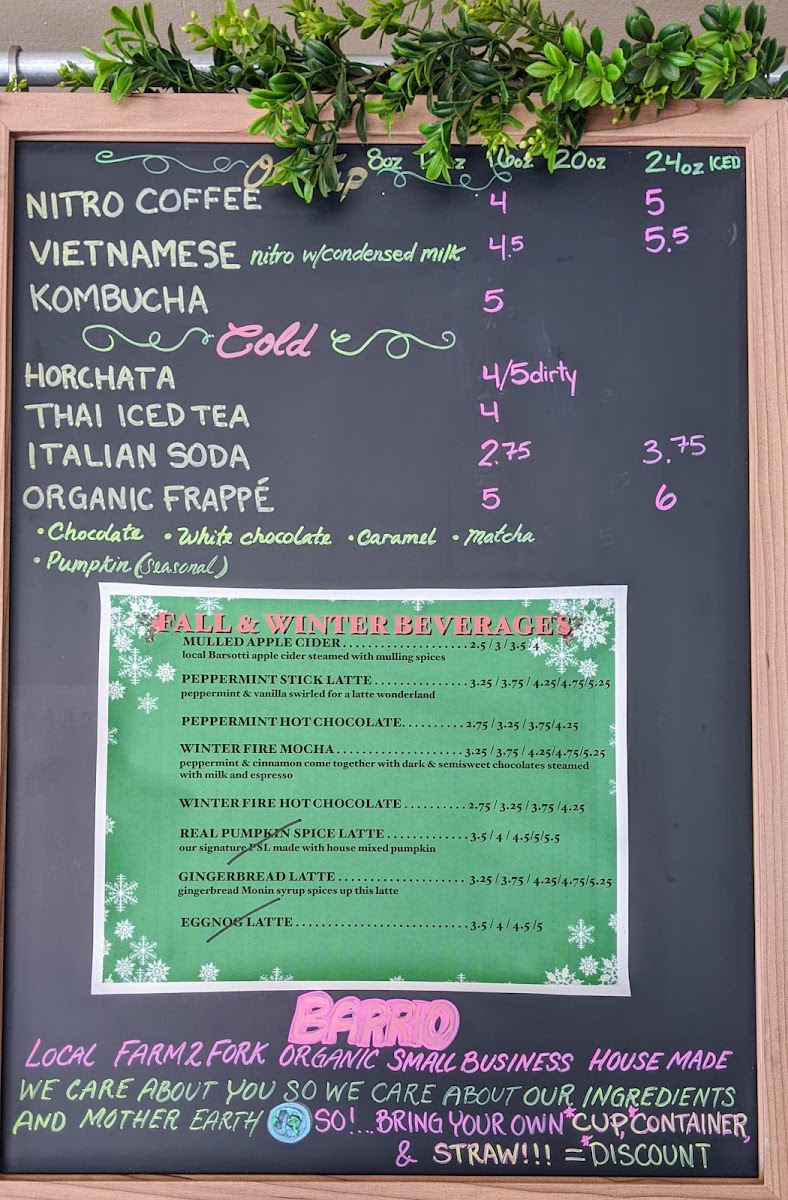 8oz 16oz 20oz 24oz ICED
NITRO COFFEE 4 5
VIETNAMESE nitro w/condensed milk 4.5 5.5
KOMBUCHA 5
Cold
HORCHATA 4/5dirty
THAI ICED TEA 4
ITALIAN SODA 2.75 3.75
ORGANIC FRAPPÉ 5 6
• Chocolate • White chocolate • Caramel • Matcha
• Pumpkin (seasonal)
FALL & WINTER BEVERAGES
MULLED APPLE CIDER....................2.5 / 3 / 3.5 / 4
local Barsotti apple cider steamed with mulling spices
PEPPERMINT STICK LATTE...............3.25 / 3.75 / 4.25/4.75/5.25
peppermint & vanilla swirled for a latte wonderland
PEPPERMINT HOT CHOCOLATE..........2.75 / 3.25 / 3.75/4.25
WINTER FIRE MOCHA....................3.25 / 3.75 / 4.25/4.75/5.25
peppermint & cinnamon come together with dark & semisweet chocolates steamed
with milk and espresso
WINTER FIRE HOT CHOCOLATE..........2.75 / 3.25 / 3.75 /4.25
REAL PUMPKIN SPICE LATTE.............3.5 / 4 / 4.5/5/5.5
our signature PSL made with house mixed pumpkin
GINGERBREAD LATTE....................3.25 / 3.75 / 4.25/4.75/5.25
gingerbread Monin syrup spices up this latte
EGGNOG LATTE...........................3.5 / 4 / 4.5 /5
BARRIO
LOCAL FARM2FORK ORGANIC SMALL BUSINESS HOUSE MADE
WE CARE ABOUT YOU SO WE CARE ABOUT OUR INGREDIENTS
AND MOTHER EARTH SO!...BRING YOUR OWN *CUP,*CONTAINER,
& *STRAW!!! = DISCOUNT